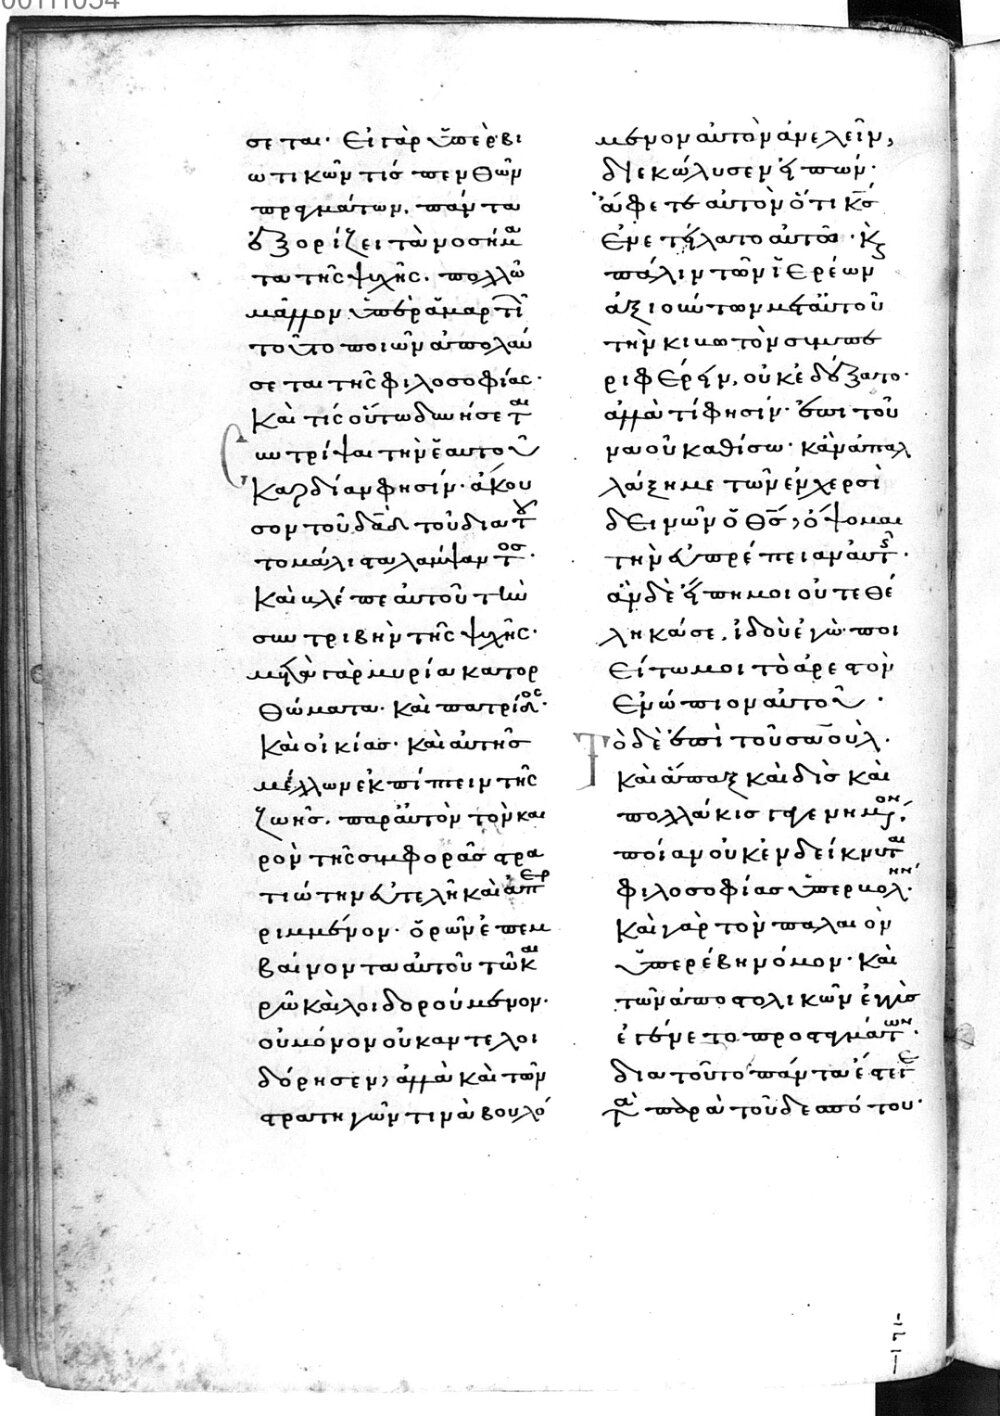 σεται· Εἰ γὰρ ὑπὲρ βι
ωτικῶν τίς πενθῶν
πραγμάτων, πάντα
ἐξορίζει τὰ νοσήμα
τα τῆς ψυχῆς. πολλῶ
μᾶλλον ὑπὲρ ἁμαρτι
τοῦτο ποιῶν ἀπολαύ
σεται τῆς φιλοσοφίας·
Καὶ τίς οὕτω δυνήσεται
συντρίψαι τὴν ἑαυτοῦ
Καρδίαν φησίν· ἄκου
σον τοῦ δαδ τοῦ δια του
το μάλιστα λάμψαντος·
Καὶ βλέπε αὐτοῦ τὴν
συντριβὴν τῆς ψυχῆς·
μετὰ γὰρ μυρία κατορ
θώματα· Καὶ πατρίδος·
Καὶ οἰκίας· Καὶ αὐτῆς
μέλλων ἐκπίπτειν τῆς
ζωῆς. παρ' αὐτὸν τὸν και
ρὸν τῆς συμφορᾶς στρα
τιώτην εὐτελῆ καὶ ἀπερ
ριμμένον· ὁρῶν ἐπεμ
βαίνοντα αὐτοῦ τῶ και
ρῶ καὶ λοιδορούμενον·
οὐ μόνον οὐκ ἀντελοι
δόρησεν, ἀλλὰ καὶ τῶν
στρατηγῶν τινὰ βουλό
μενον αὐτὸν ἀνελεῖν,
διεκώλυσεν εἰπών·
ἄφετε αὐτὸν ὅτι κς
ἐνετείλατο αὐτῶ· κ
πάλιν τῶν ἱερέων
ἀξιούντων μετ' αὐτοῦ
τὴν κιβωτὸν συμπε
ριφέρειν, οὐκ ἐδέξατο·
ἀλλὰ τί φησίν· ἐπι τοῦ
ναοῦ καθίσω· κἂν ἀπαλ
λάξη με τῶν ἐν χερσὶ
δεινῶν ὁ θς, ὄψομαι
τὴν εὐπρέπειαν αὐτῆς·
ἂν δὲ εἴπη μοι οὐ τεθέ
ληκά σε, ἰδοὺ ἐγὼ· ποι
είτω μοι τὸ ἀρεστὸν
ἐνώπιον αὐτοῦ·
Τὸ δὲ ἐπὶ τοῦ σαούλ·
Καὶ ἅπαξ καὶ δὶς καὶ
πολλάκις γενημένον·
ποίαν οὐκ ἐνδείκνυται
φιλοσοφίας ὑπερβολήν·
Καὶ γὰρ τὸν παλαιὸν
ὑπερέβη νόμον· Καὶ
τῶν ἀποστολικῶν ἐγγὺς
ἐγένετο προσταγμάτων·
δια τοῦτο πάντα ἔστεργε
τὰ παρὰ τοῦ δεσπότου·